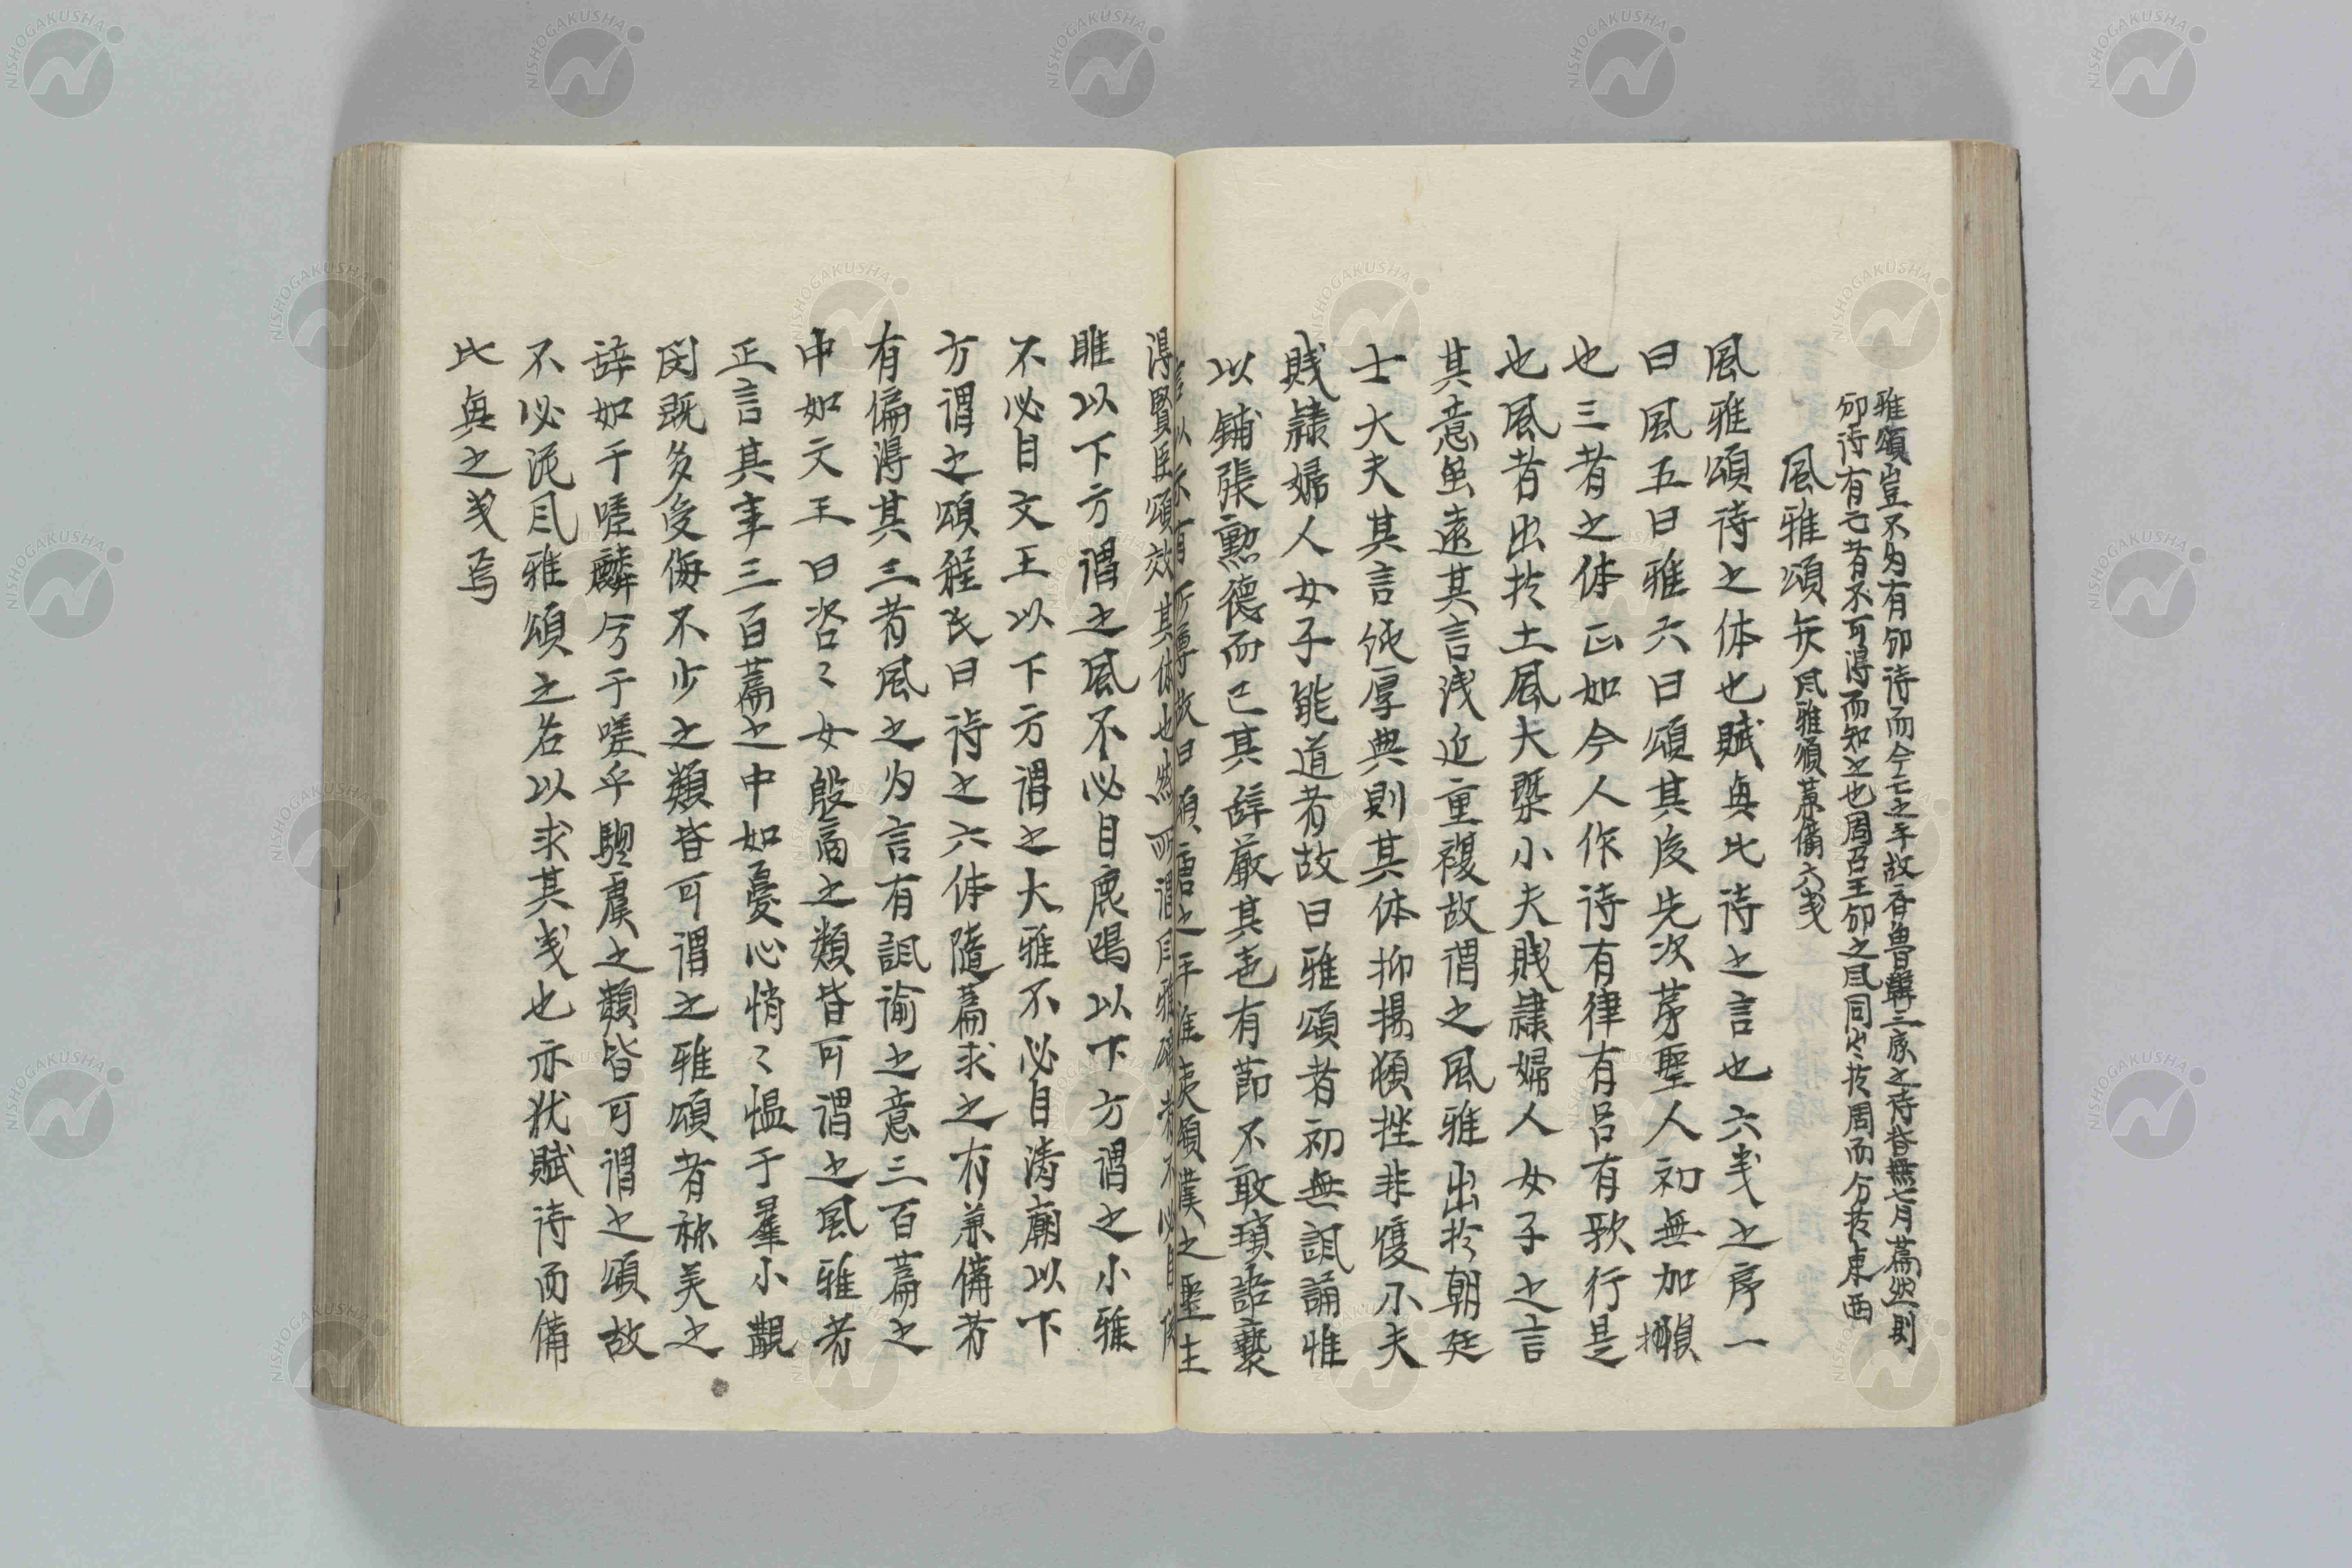 雅頌豈不為有邠詩而今亡之乎故斉魯韓三家之詩皆無七月篇然則
邠詩有亡者不可得而知之也周召王邠之風同出於周而分於東西
風雅頌矣風雅頌兼備六義
風雅頌詩之体也賦興比詩之言也六義之序一
曰風五曰雅六曰頌其後先次第聖人初無加損
也三者之体正如今人作詩有律有呂有歌行是
也風者出於土風大槩小夫賎隷婦人女子之言
其意虽遠其言浅近重複故謂之風雅出於朝廷
士大夫其言純厚典則其体抑揚頓挫非復小夫
賎隷婦人女子能道者故曰雅頌者初無諷誦惟
以鋪張勲德而已其辞嚴其声有節不敢瑣語褻
言以示有所尊故曰頌唐之平淮夷頌漢之聖主
得賢臣頌效其体也然所謂風雅頌者不必自関
雎以下方謂之風不必自鹿鳴以下方謂之小雅
不必自文王以下方謂之大雅不必自清廟以下
方謂之頌程氏曰詩之六体随篇求之有兼備者
有偏得其三者風之為言有諷諭之意三百篇之
中如文王曰咨々女殷商之類皆可謂之風雅者
正言其事三百篇之中如憂心悄々慍于羣小覯
閔既多受侮不少之類皆可謂之雅頌者称美之
辞如于嗟麟兮于嗟乎騶虞之類皆可謂之頌故
不必泥風雅頌之名以求其義也亦犹賦詩而備
比興之義焉
NISHOGAKUSHA